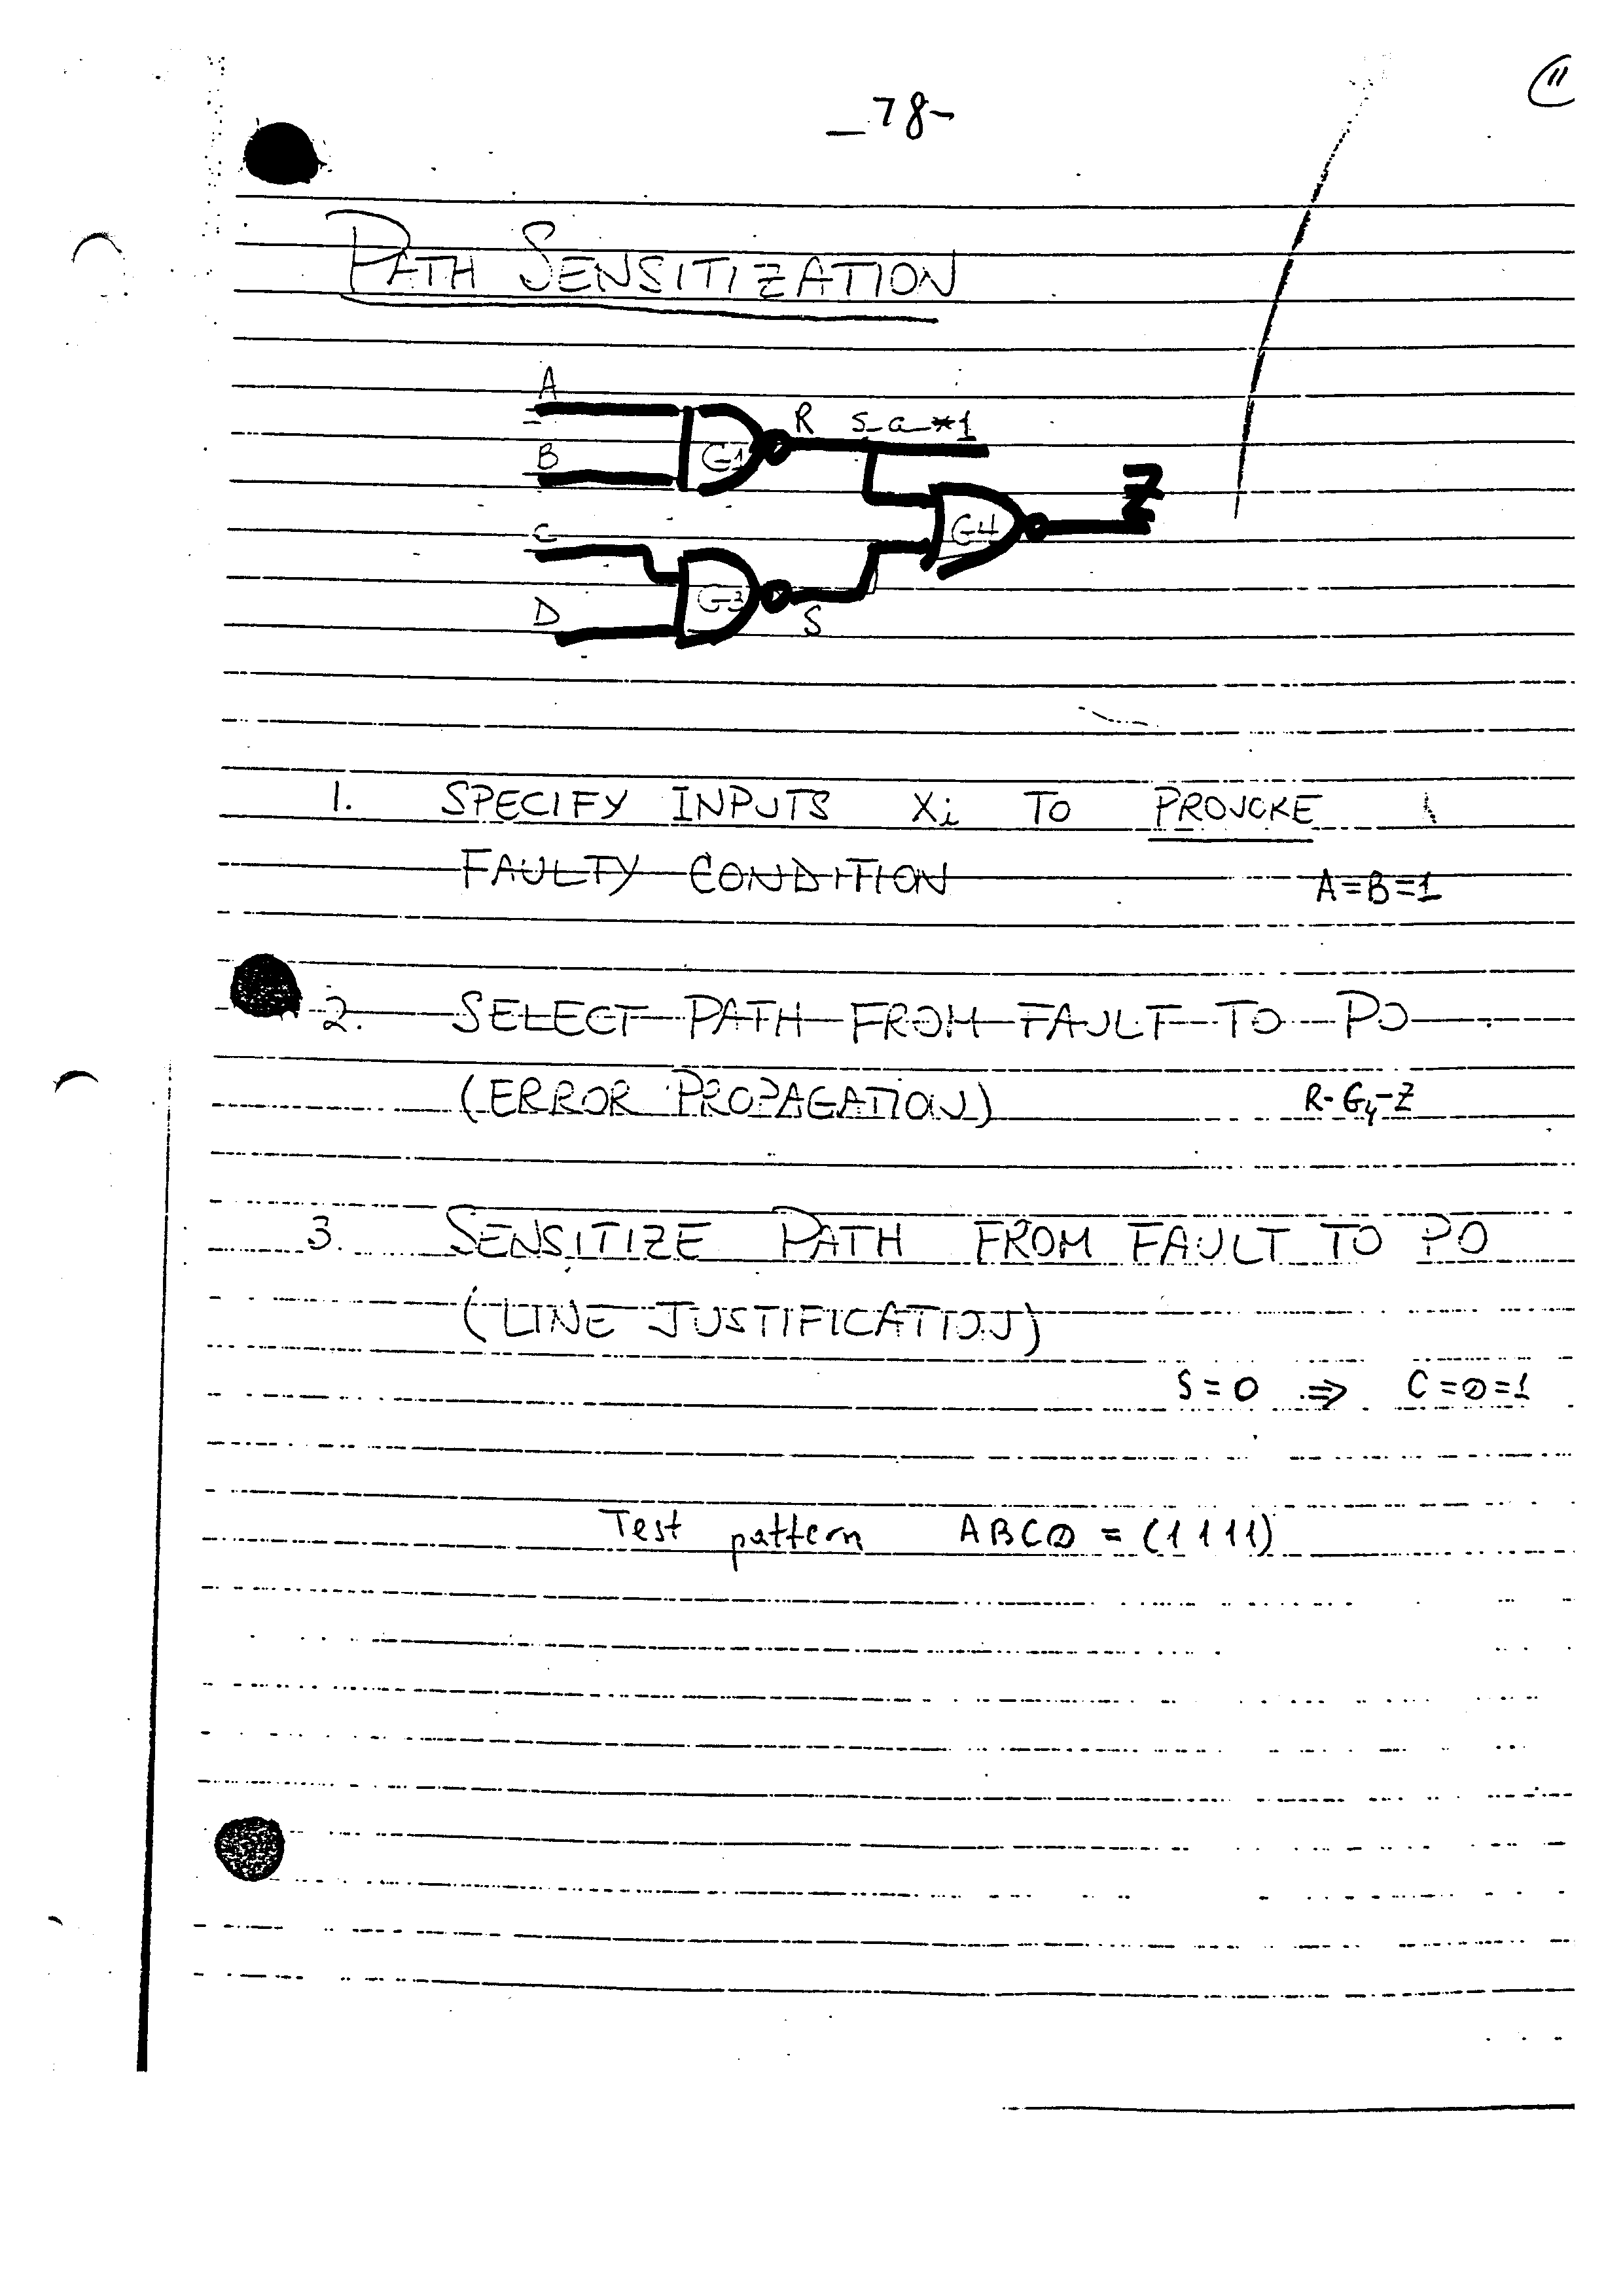 -78-
11
PATH SENSITIZATION
A
R s-a-1
B
G1
Z
G4
C
G3
D
S
1. SPECIFY INPUTS Xi TO PROVOKE
FAULTY CONDITION
A=B=1
2. SELECT PATH FROM FAULT TO PO
(ERROR PROPAGATION) R-G4-Z
3. SENSITIZE PATH FROM FAULT TO PO
(LINE JUSTIFICATION)
S=0 ⇒ C=D=1
Test pattern ABCD = (1111)